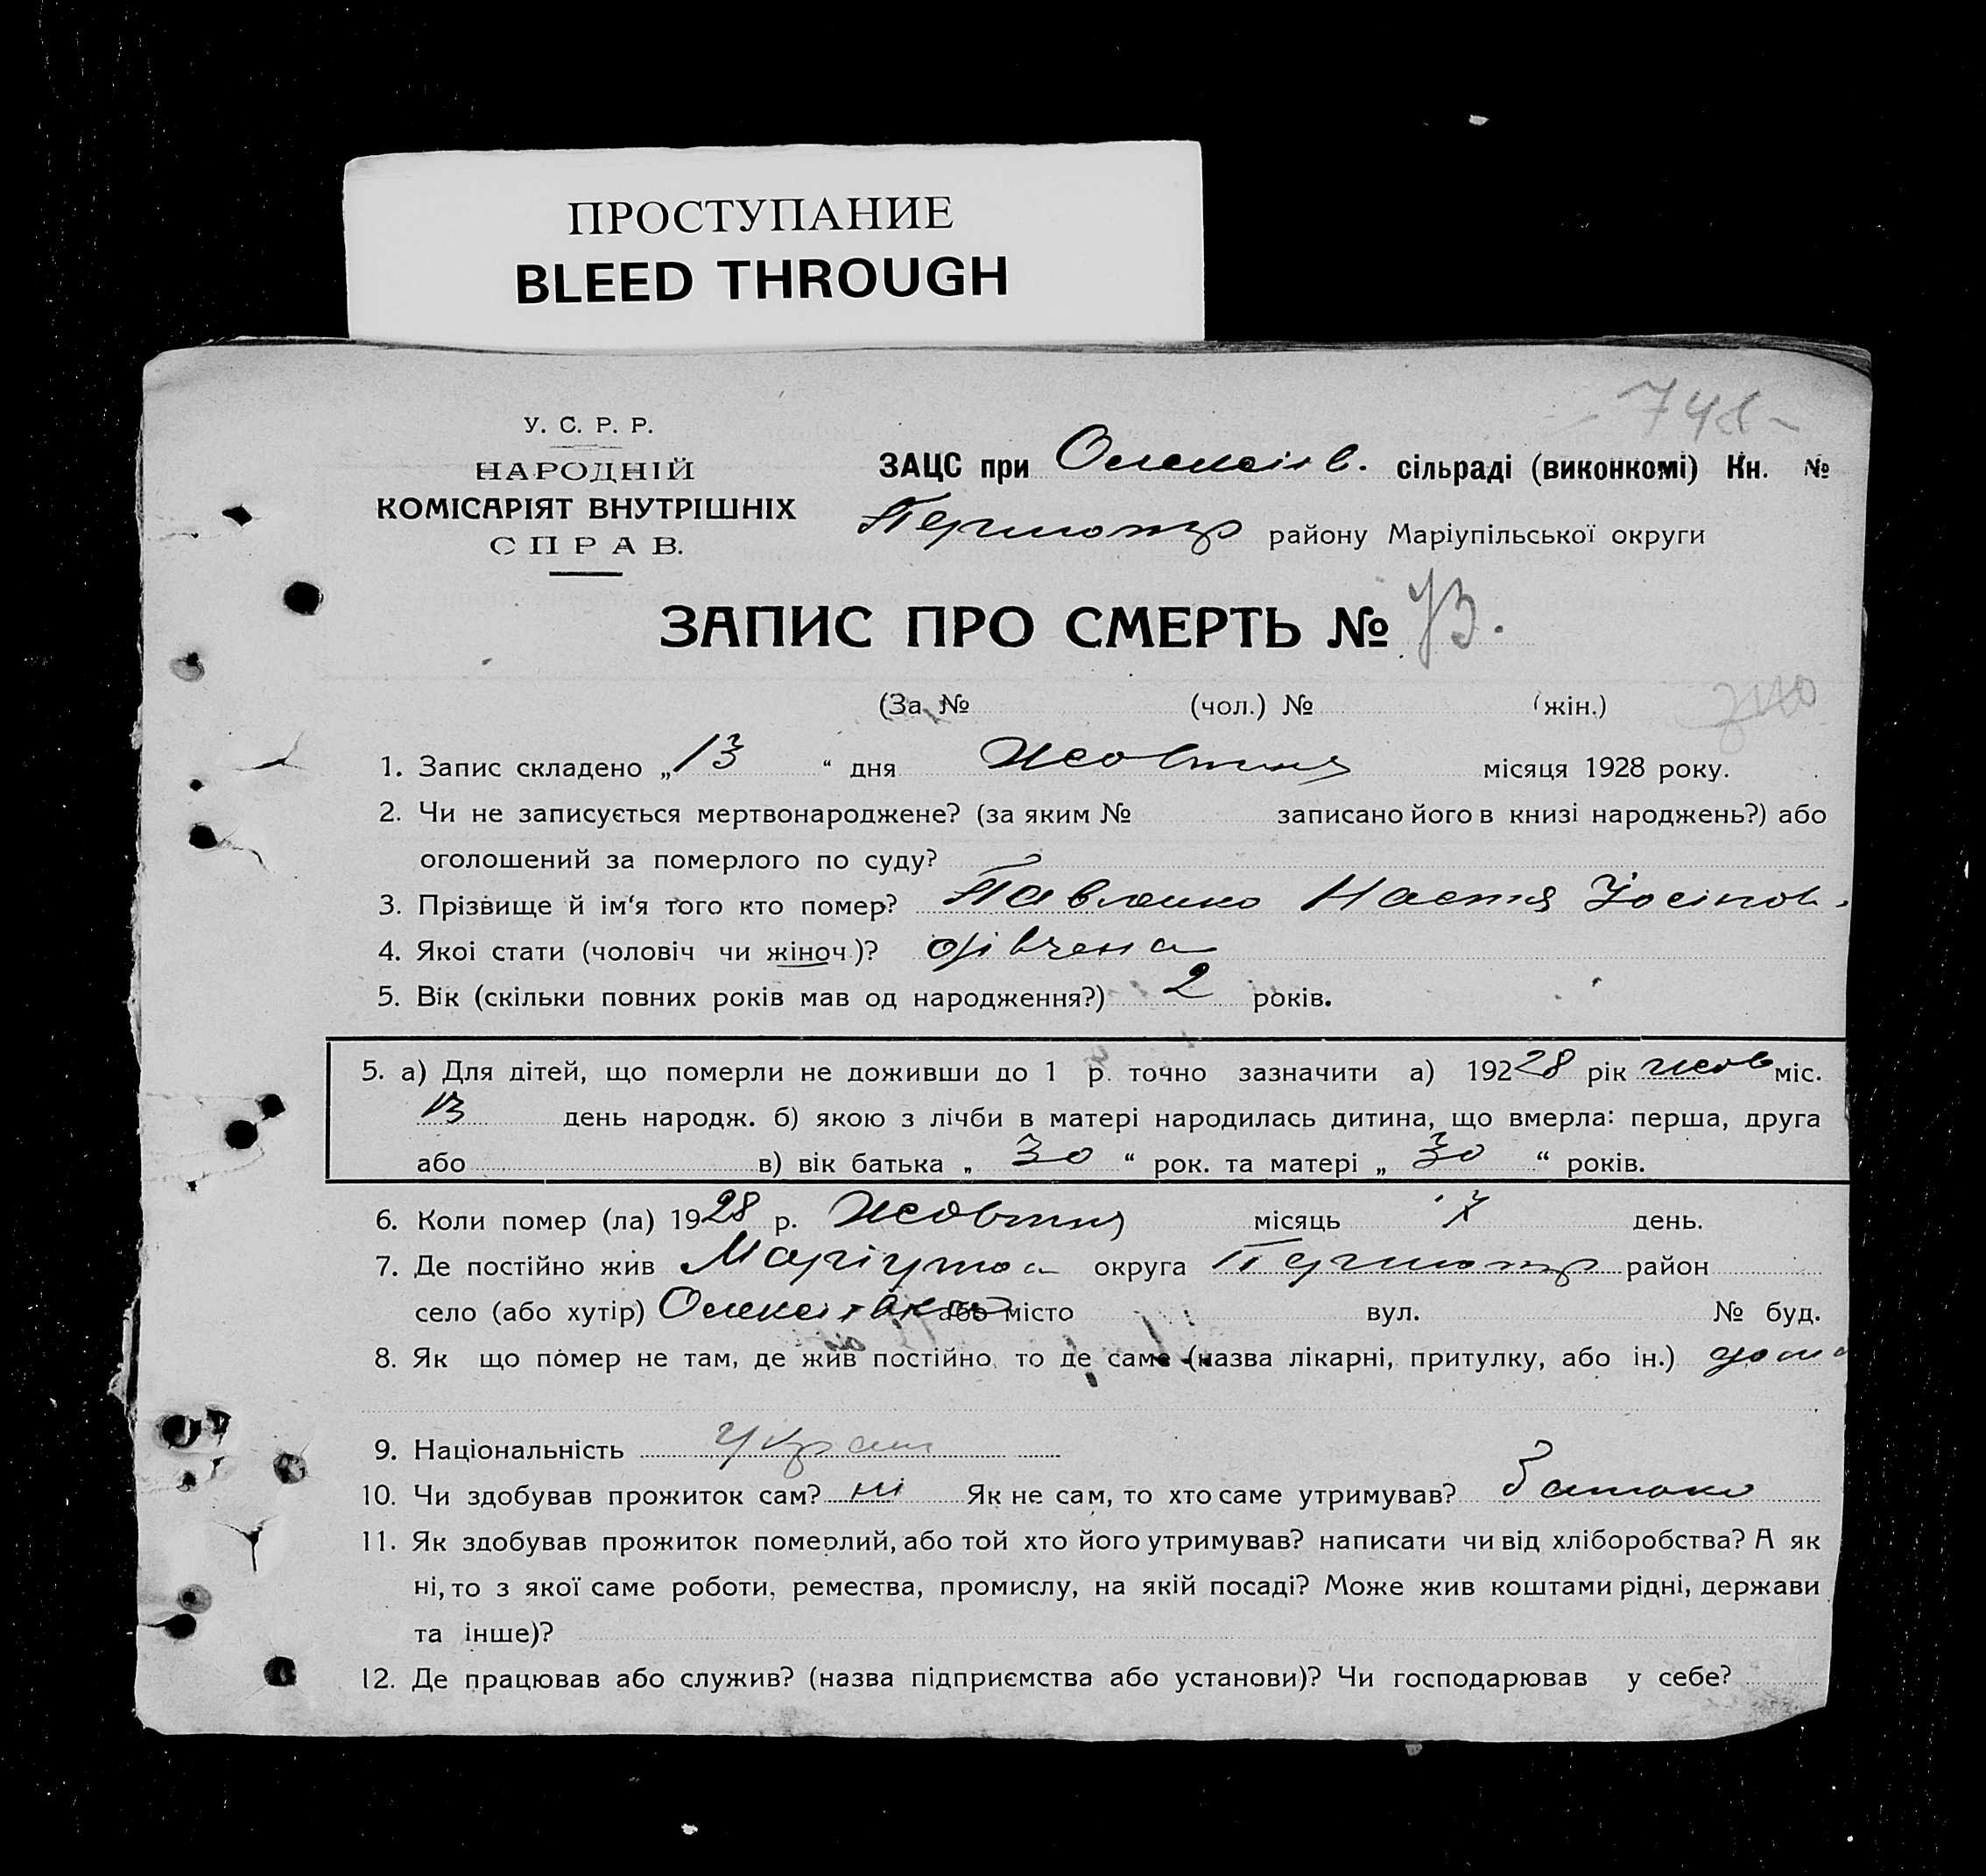 ПРОСТУПАНИЕ
BLEED THROUGH
748
У. С. Р. Р.
НАРОДНІЙ
КОМІСАРІЯТ ВНУТРІШНІХ
СПРАВ.
ЗАЦС при Олексіїв. сільраді (виконкомі) Кн. №
району Маріупільської округи
ЗАПИС ПРО СМЕРТЬ №
(За № (чол.) № (жін.)
1. Запис складено „13“ дня Жовтня місяця 1928 року.
2. Чи не записується мертвонароджене? (за яким № записано його в книзі народжень?) або
оголошений за померлого по суду?
3. Прізвище й ім'я того кто помер? Павленко Настя Йосіпов.
4. Якоі стати (чоловіч чи жіноч.)? дівчена
5. Вік (скільки повних років мав од народження?) 2 років.
5. а) Для дітей, що померли не доживши до 1 р. точно зазначити а) 19228 рік жов міс.
13 день народж. б) якою з лічби в матері народилась дитина, що вмерла: перша, друга
або в) вік батька „ 30 “ рок. та матері „ 30 “ років.
6. Коли помер (ла) 1928 р. Жовтня місяць день.
7. Де постійно жив округа район
село (або хутір) Олексіївка або місто вул. № буд.
8. Як що помер не там, де жив постійно то де саме (назва лікарні, притулку, або ін.) дома
9. Національність Украін
10. Чи здобував прожиток сам? ні Як не сам, то хто саме утримував? Батько
11. Як здобував прожиток померлий, або той хто його утримував? написати чи від хліборобства? А як
ні, то з якої саме роботи, ремества, промислу, на якій посаді? Може жив коштами рідні, держави
та інше)?
12. Де працював або служив? (назва підприємства або установи)? Чи господарював у себе?